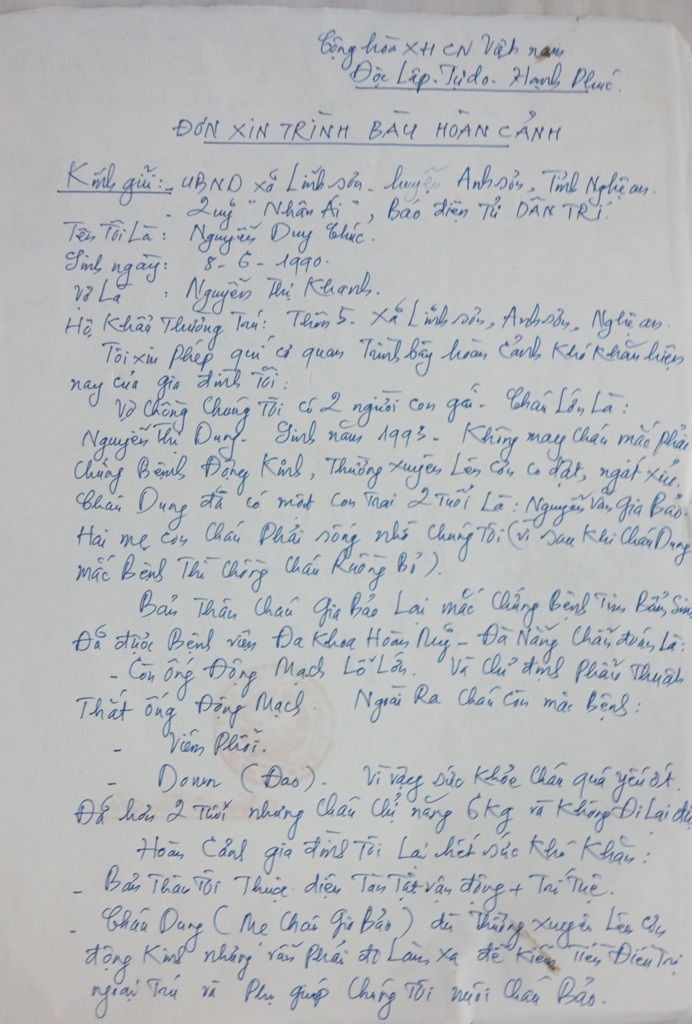 Cộng hòa XHCN Việt nam
Độc Lập - Tự do - Hạnh Phúc.
ĐƠN XIN TRÌNH BÀY HOÀN CẢNH
Kính gửi: - UBND xã Lĩnh sơn - huyện Anh sơn, Tỉnh Nghệ an.
- Quỹ "Nhân Ái", Báo điện Tử DÂN TRÍ.
Tên Tôi Là: Nguyễn Duy Chúc.
Sinh ngày: 8 - 6 - 1990.
Vợ Là : Nguyễn Thị Khanh.
Hộ Khẩu Thường Trú: Thôn 5 - Xã Lĩnh sơn, Anh sơn, Nghệ an.
Tôi xin phép quí cơ quan Trình bày hoàn cảnh Khó khăn hiện
nay của gia đình Tôi:
Vợ chồng Chúng Tôi có 2 người con gái - Cháu Lớn Là:
Nguyễn Thị Dung - Sinh năm 1993 - Không may cháu mắc phải
chứng Bệnh Động Kinh, Thường xuyên Lên cơn co dật, ngất xỉu.
Cháu Dung đã có một con Trai 2 Tuổi Là: Nguyễn Văn Gia Bảo.
Hai mẹ con Cháu Phải sống nhờ Chúng Tôi (vì sau Khi Cháu Dung
mắc Bệnh Thì Chồng Cháu Ruồng Bỏ).
Bản Thân Cháu Gia Bảo Lại mắc Chứng Bệnh Tim Bẩm Sinh
Đã được Bệnh viện Đa Khoa Hoàn Mỹ - Đà Nẵng Chẩn đoán Là:
- Còn ống Động Mạch Lỗ Lớn. Và Chỉ định Phẫu Thuật
Thắt ống Động Mạch. Ngoài Ra Cháu Còn mắc Bệnh:
- Viêm Phổi.
- Down (Đao). Vì vậy sức khỏe Cháu quá yếu ớt.
Đã hơn 2 Tuổi nhưng Cháu Chỉ nặng 6 Kg và Không Đi Lại
Hoàn Cảnh gia đình Tôi Lại hết sức Khó Khăn:
- Bản Thân Tôi Thuộc diện Tàn Tật vận động + Trí Tuệ.
- Cháu Dung (Mẹ Cháu Gia Bảo) dù Thường xuyên Lên cơn
động Kinh nhưng vẫn Phải đi Làm xa để Kiếm Tiền Điều Trị
ngoại Trú và Phụ giúp Chúng Tôi nuôi Cháu Bảo.